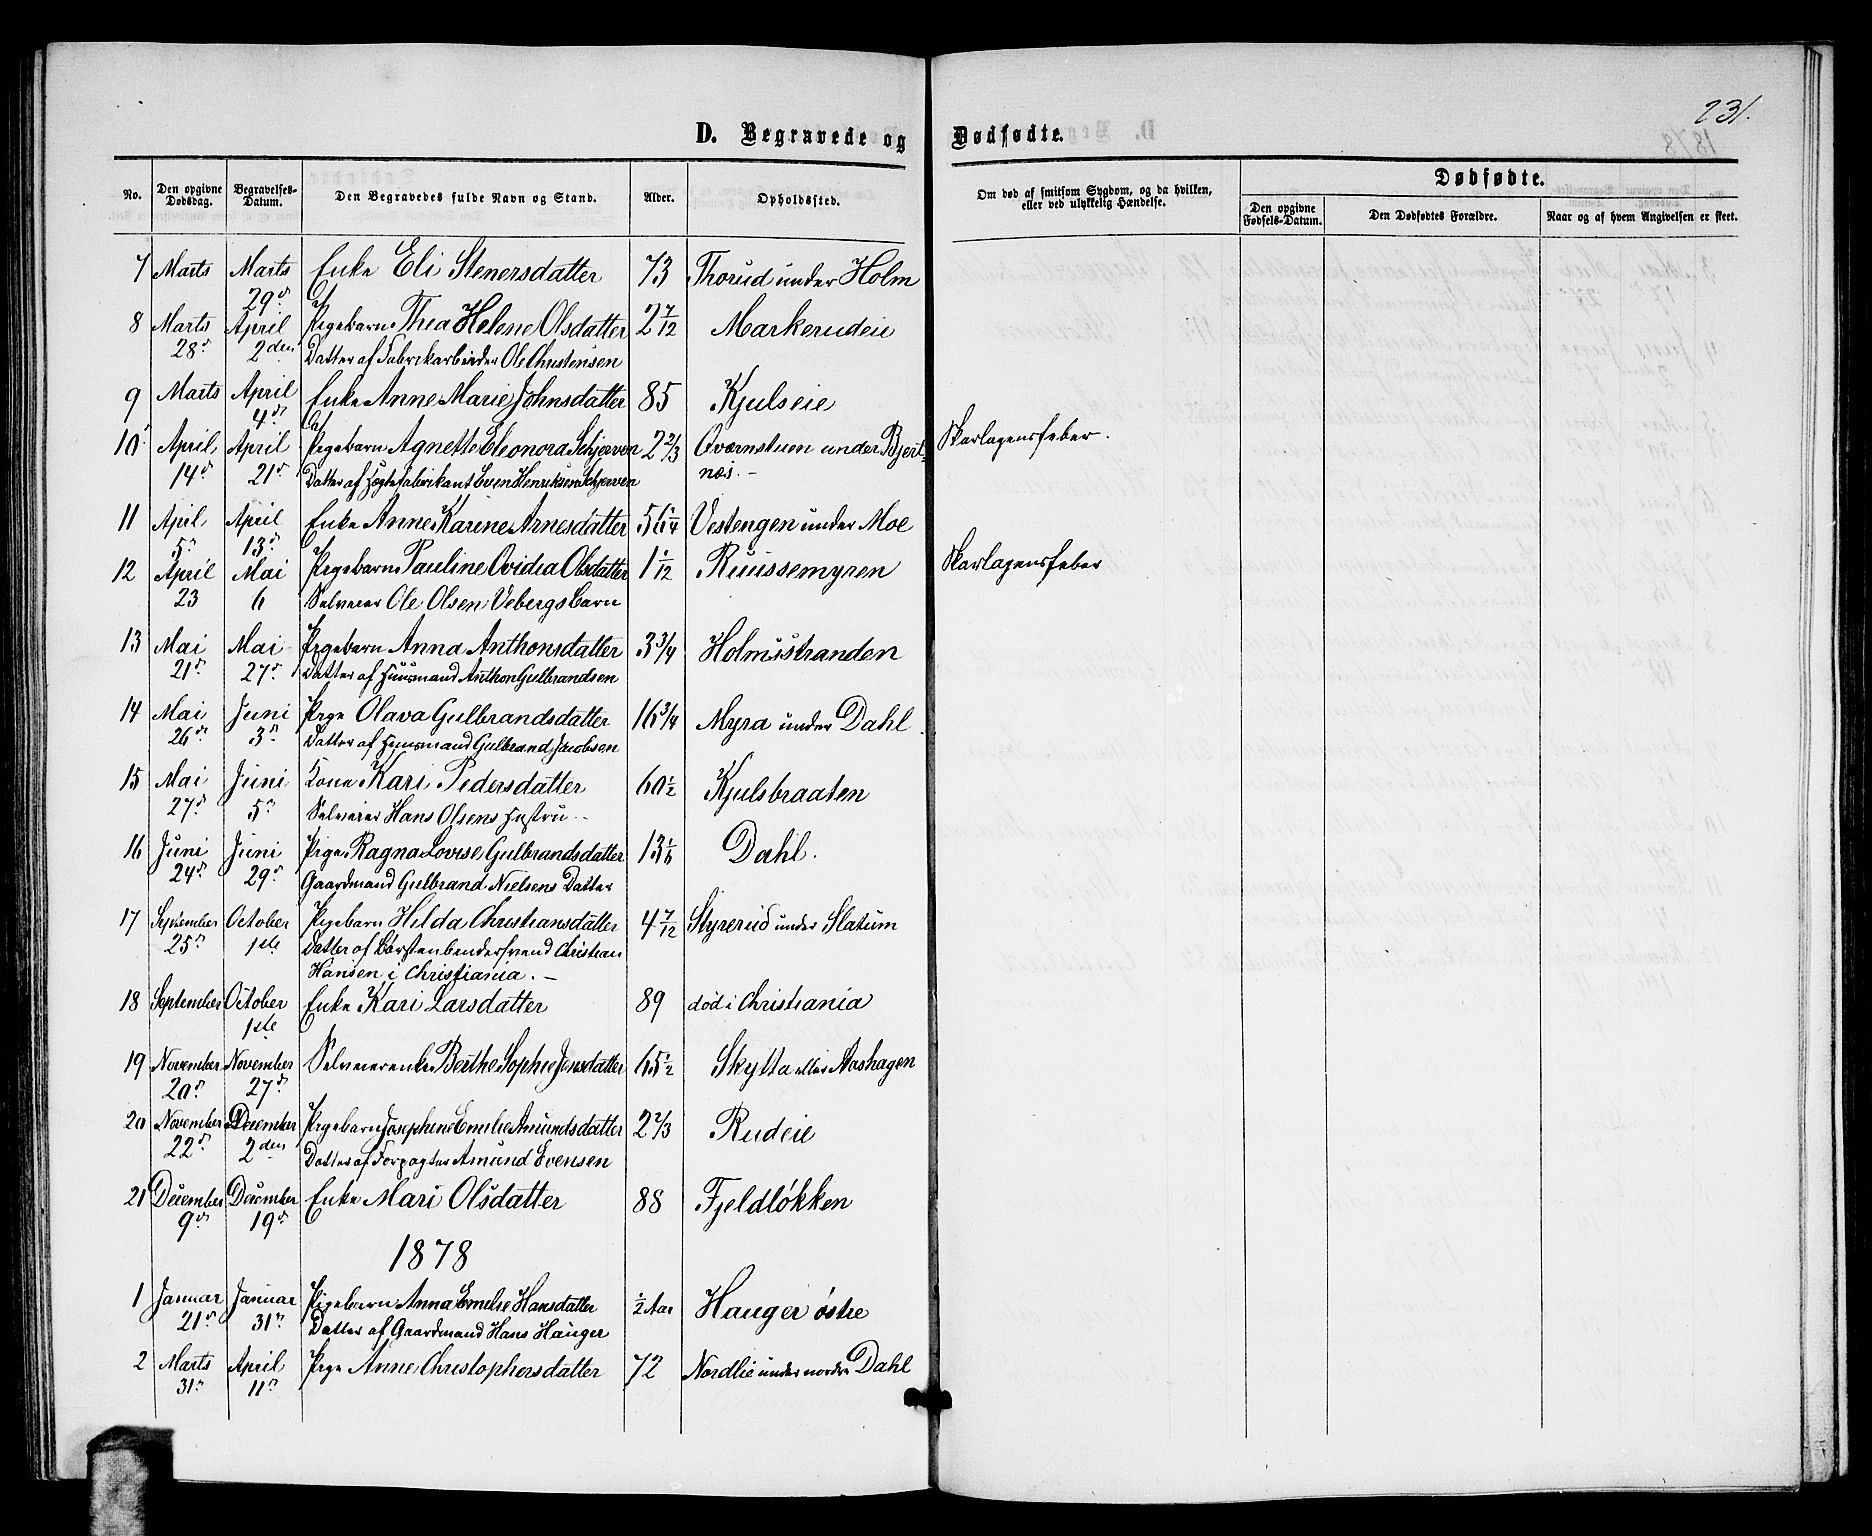 231.
D. Begravede og Dødfødte.
No. Den opgivne Dødsdag. Begravelses-Datum. Den Begravedes fulde Navn og Stand. Alder. Opholdssted. Om død af smitsom Sygdom, og da hvilken, eller ved ulykkelig Hændelse. Dødfødte.
Den opgivne Fødsels-Datum. Den Dødfødtes Forældre. Naar og af hvem Angivelsen er skeet.
7 Marts Marts 29d Enke Eli Stenersdatter 73 Thorud under Holm
8 Marts 28d April 2den Pigebarn Thea Helene Olsdatter 2 7/12 Markerudeie
Datter af Fabrikarbeider Ole Christensen
9 Marts April 4d Enke Anne Marie Johnsdatter 85 Kjulseie
10 April 14d April 21d Pigebarn Agnethe Eleonora Schjerven 2 2/3 Qværnstuen under Bjertnæs. Skarlagensfeber.
Datter af Fabrikant Even Henriksen Schjerven
11 April 5d April 13d Enke Anne Karine Arnesdatter 56 1/4 Vestengen under Moe
12 April 23 Mai 6 Pigebarn Pauline Ovidia Olsdatter 1 1/12 Ruussemyren Skarlagensfeber
Selveier Ole Olsen Vebergs Barn
13 Mai 21d Mai 27d Pigebarn Anna Anthonsdatter 3 3/4 Holmsstranden
Datter af Huusmand Anthon Gulbrandsen
14 Mai 26d Juni 3d Pige Olava Gulbrandsdatter 16 3/4 Myra under Dahl
Datter af Huusmand Gulbrand Jacobsen
15 Mai 27d Juni 5d Kone Kari Pedersdatter 60 1/2 Kjulsbraaten
Selveier Hans Olsens Hustru
16 Juni 24d Juni 29d Pige Ragna Lovise Gulbrandsdatter 13 1/6 Dahl.
Gaardmand Gulbrand Nielsens Datter
17 September 25d October 1ste Pigebarn Hilda Christiansdatter 4 7/12 Styrerud under Slatum
Datter af Børstenbindersvend Christian
Hansen i Christiania.
18 September October 1ste Enke Kari Larsdatter 89 død i Christiania
19 November 20d November 27d Selveierenke Berthe Sophie Jensdatter 65 1/2 Skytta eller Aashagen
20 November 22d December 2den Pigebarn Josephine Emelie Amundsdatter 2 2/3 Rudeie
Datter af Forpagter Amund Evensen
21 December 9d December 19d Enke Mari Olsdatter 88 Fjeldløkken
1878
1 Januar 21d Januar 31d Pigebarn Anna Emelie Hansdatter 1/2 Aar Hauger østre
Datter af Gaardmand Hans Hauger
2 Marts 31d April 11d Pige Anne Christophersdatter 72 Nordlie under nordre Dahl